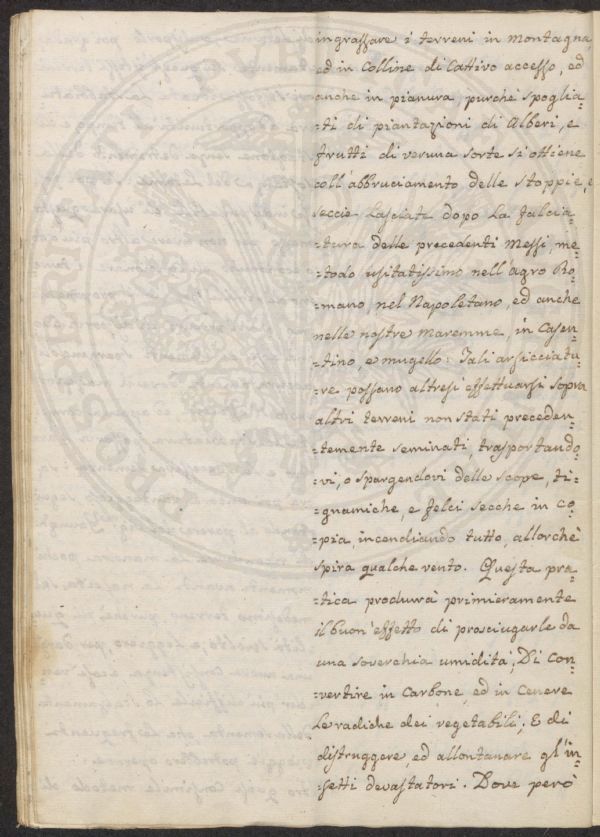 ingrassare i terreni in montagna,
ed in Colline di Cattivo accesso, ed
anche in pianura, purchè spoglia=
=ti di piantazioni di Alberi, e
frutti di veruna sorte si ottiene
coll'abbruciamento delle Stoppie, e
seccie lasciate dopo la falcia=
=tura delle precedenti Messi, me=
=todo usitatissimo nell'agro Ro=
=mano, nel Napoletano, ed anche
nelle nostre maremme, in Casen=
=tino, e mugello. Tali arsicciatu=
=re possano altresì effettuarsi sopra
altri terreni non stati preceden=
=temente seminati, trasportando=
=vi, o spargendovi delle scope, ti=
=gnamiche, e felci secche in co=
=pia, incendiando tutto, allorchè
spira qualche vento. Questa pra=
=tica produrrà primieramente
il buon'effetto di prosciugarle da
una soverchia umidità; Di con=
=vertire in Carbone, ed in Cenere
le radiche dei vegetabili; E di
distruggere, ed allontanare gl'in=
=setti devastatori. Dove però